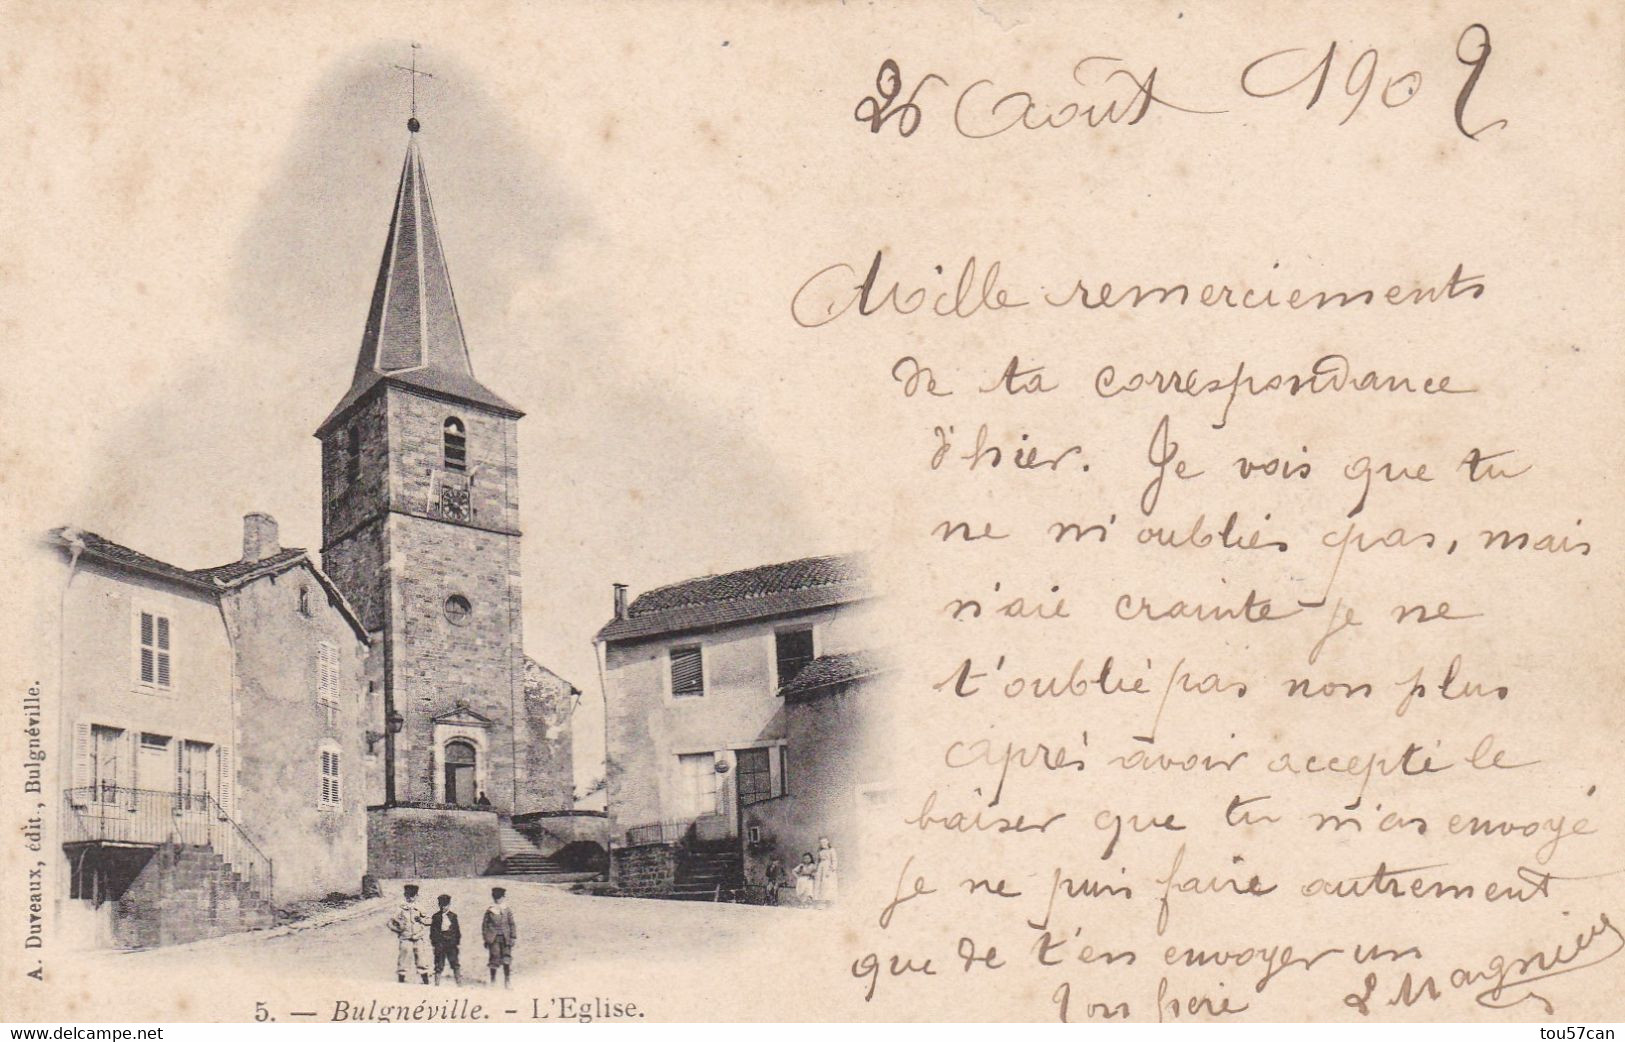 26 Août 1902
Mille remerciements
de ta correspondance
d'hier. Je vois que tu
ne m'oublies pas, mais
n'aie crainte je ne
t'oublie pas non plus
après avoir accepté le
baiser que tu m'as envoyé
je ne puis faire autrement
que de t'en envoyer un
Ton père L Magnien
A. Duveaux, édit., Bulgnéville.
5. — Bulgnéville. - L'Eglise.
tou57can